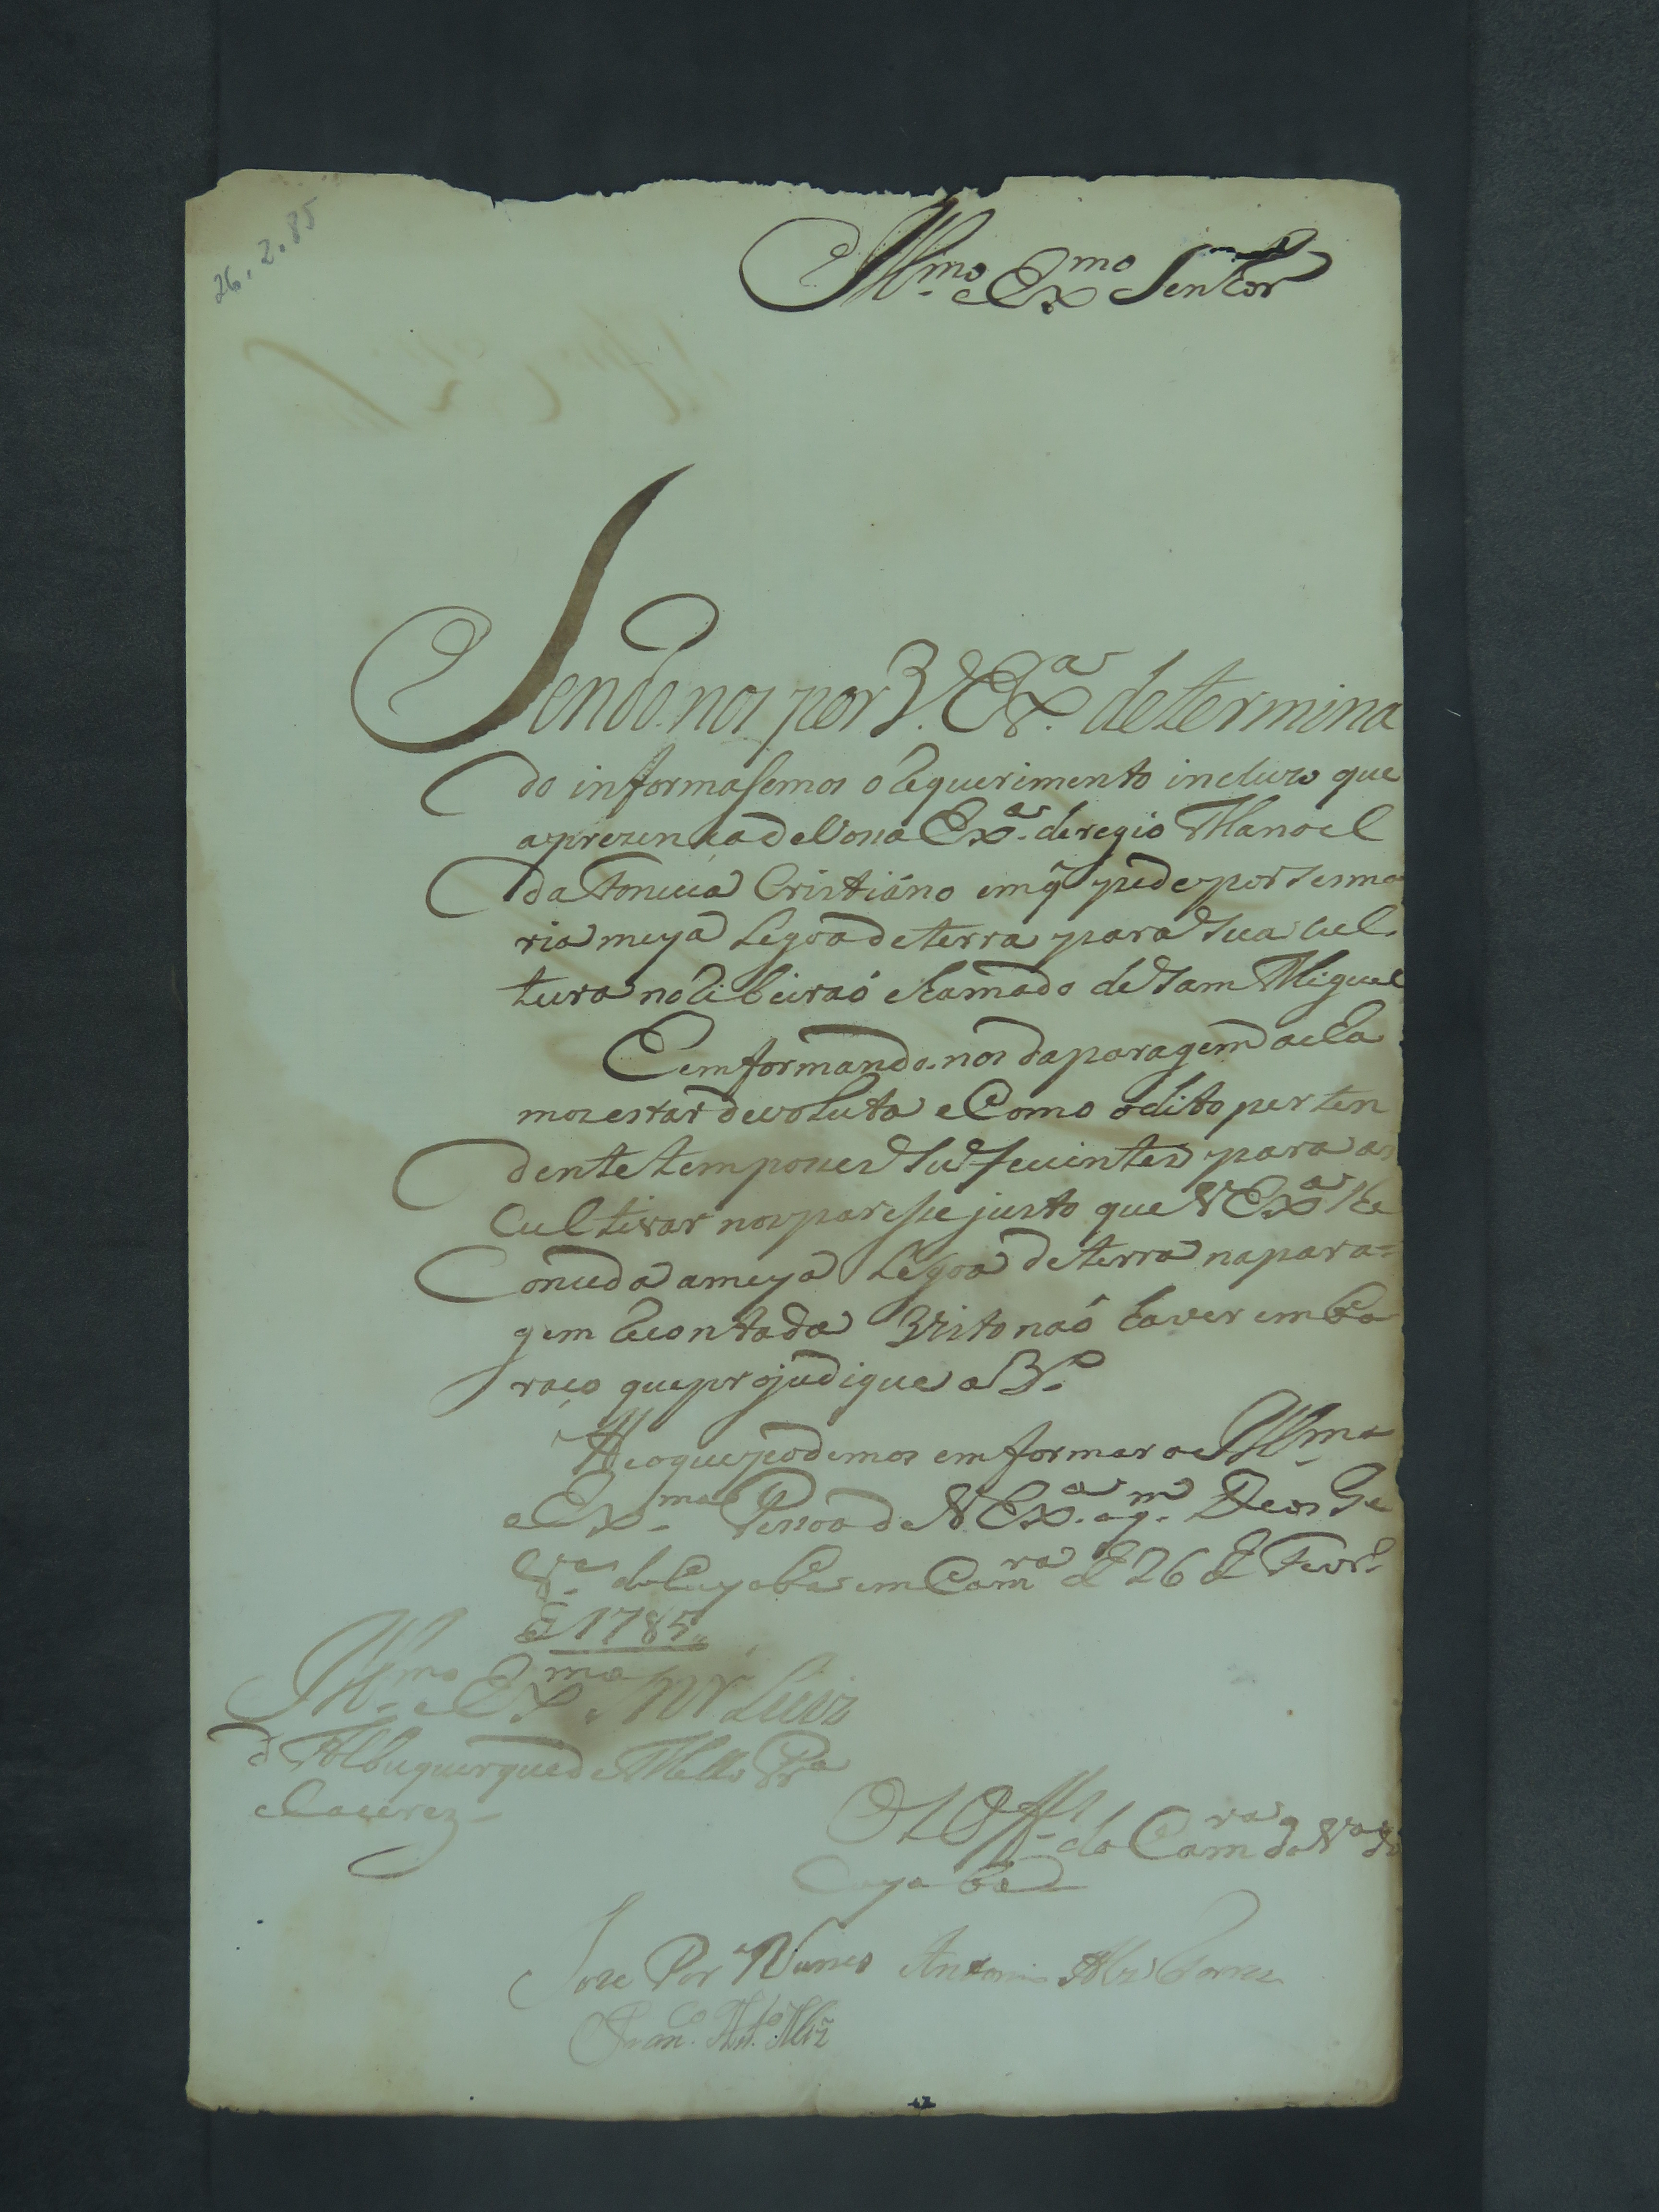 26.2.85
Illmo e Exmo Senhor
Sendo.nos por V. Exª determina
do informasemos o Requerimento incluzo que
aprezença de Vosa Exª. deregio Manoel
da Fonceca Cristiáno em q̃ pede por sesma
ria meya Legoa de terra para sua cul.
tura nó Ribeiraó chamado de Sam Miguel
E emformando.nos da paragem acha
mos estar devoluta e Como o dito perten
dente tem poses sufecientes para as
Cultivar nos parese justo que V Exª lhe
Conceda a meya Legoa de terra na para=
gem Recontada Visto naó haver emba
raço que projudique a 3.º
He o que podemos emformar a Illma
e Exma Pesoa de V Exª. a q.m Deos Ge
Vª do Cuyabá em Camra de 26 de Fevro
de 1785
Illmo e Exmo Snr Luiz
de Albuquerque de Mello Pra
e Caceres
Os Offes da Camra da Vª do
Cuyabá
Joze Por Nunes Antonio Alz Torres
Franco. Anto. Alz